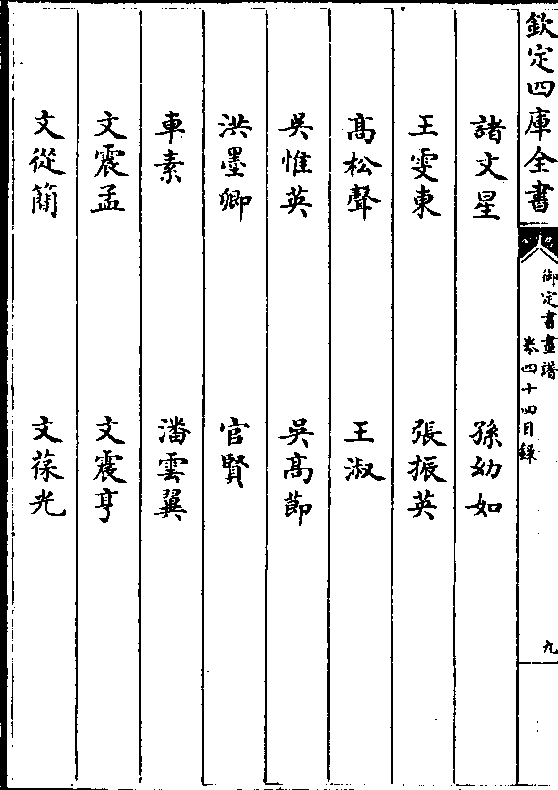 欽定四庫全書
御定書畫譜
卷四十四目錄
九
諸文星 孫幼如
王雯東 張振英
高松聲 王淑
吳惟英 吳高節
洪墨卿 官賢
車素 潘雲翼
文震孟 文震亨
文從簡 文葆光